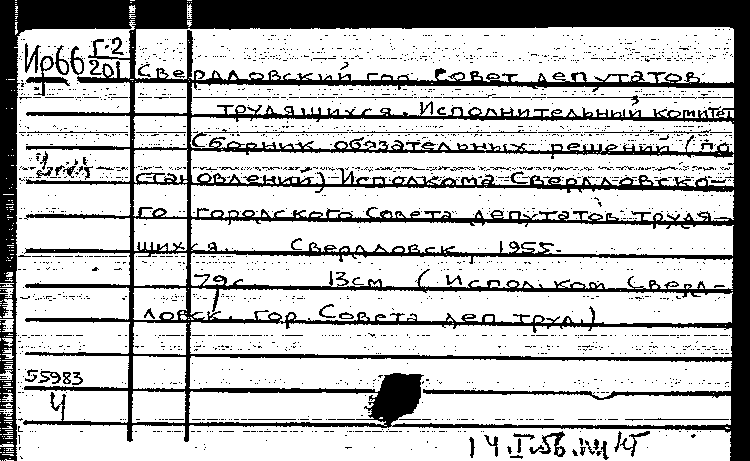 Ир66 Г-2
201
Свердловский гор. Совет депутатов
трудящихся. Исполнительный комитет
Сборник обязательных решений (по
становлений) Исполкома Свердловско-
го городского Совета депутатов трудя-
щихся. Свердловск, 1955.
79 с. 13 см (Испол. ком. Сверд-
ловск. гор. Совета деп. труд.)
55983
Ч
14.I.56.